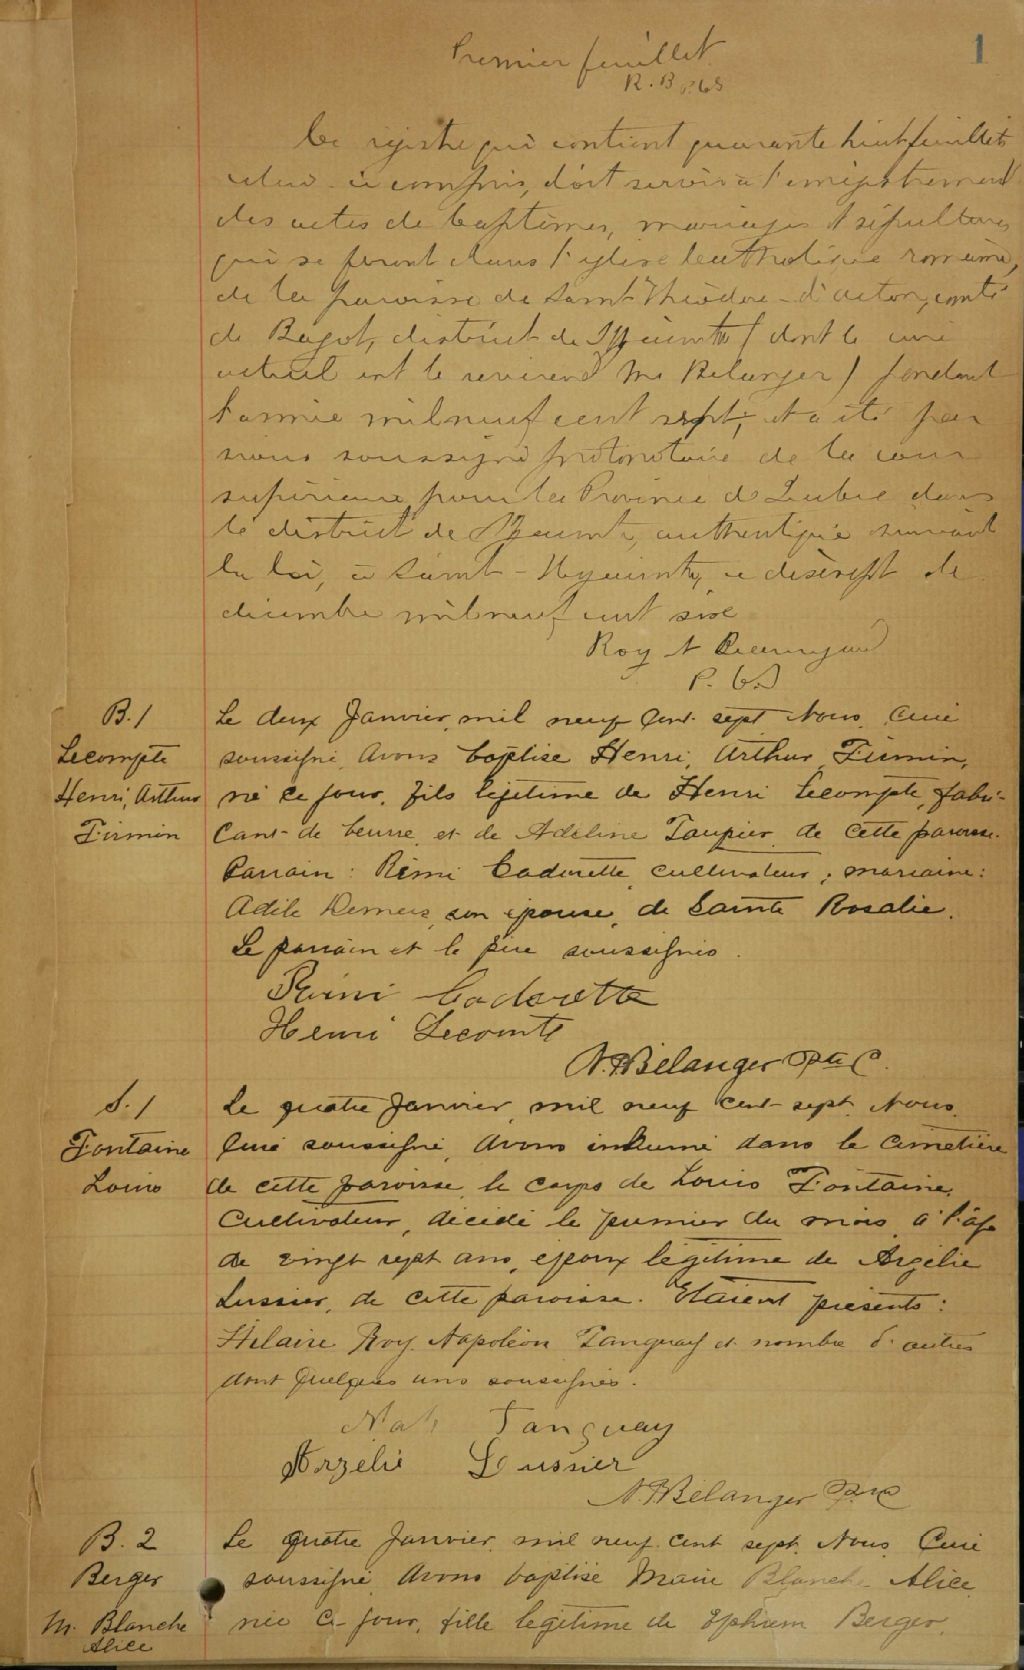 1
Premier feuillet.
R. B
Ce registre qui contient quarante huit feuillets
celui-ci compris, doit servir à l'enregistrement
des actes de baptêmes, mariages & sépultures
qui se feront dans l'église Catholique romaine,
de la paroisse de Saint Théodore-d'acton, comté
de Bagot, district de St Hyacinthe (dont le curé
actuel est le révérend Mr Belanger) pendant
l'année mil neuf cent sept, et a été par
nous soussigné protonotaire de la cour
supérieure pour la Province de Québec dans
le district de St Hyacinthe, authentiqué suivant
la loi, à Saint-Hyacinthe, ce dixsept de
décembre mil neuf cent six
Roy & Beauregard
P. C. S
B. 1
Lecompte
Henri, Arthur
Firmin
Le deux Janvier, mil neuf cent sept Nous, Curé
soussigné, avons baptisé Henri, Arthur, Firmin,
né ce jour, fils légitime de Henri Lecompte, fabri-
cant de beurre et de Adéline Taupier de cette paroisse.
Parrain : Rémi Cadorette, cultivateur ; marraine :
Adèle Demers, son épouse, de Sainte Rosalie.
Le parrain et le père soussignés.
Rémi Cadorette
Henri Lecomte
N. P. Bélanger Ptre C.
S. 1
Fontaine
Louis
Le quatre Janvier, mil neuf cent sept, Nous,
Curé soussigné, avons inhumé dans le cimetière
de cette paroisse, le corps de Louis Fontaine,
cultivateur, décédé le premier du mois, à l'âge
de vingt sept ans, époux légitime de Argélie
Lussier, de cette paroisse. Etaient présents :
Hilaire Roy, Napoléon Tanguay et nombre d'autres
dont quelques uns soussignés.
Nap Tanguay
Arzelie Lussier
N. P. Bélanger Ptre C
B. 2
Berger
M. Blanche
Alice
Le quatre Janvier, mil neuf cent sept, Nous, Curé
soussigné, avons baptisé Marie Blanche Alice
née ce jour, fille légitime de Ephrem Berger,